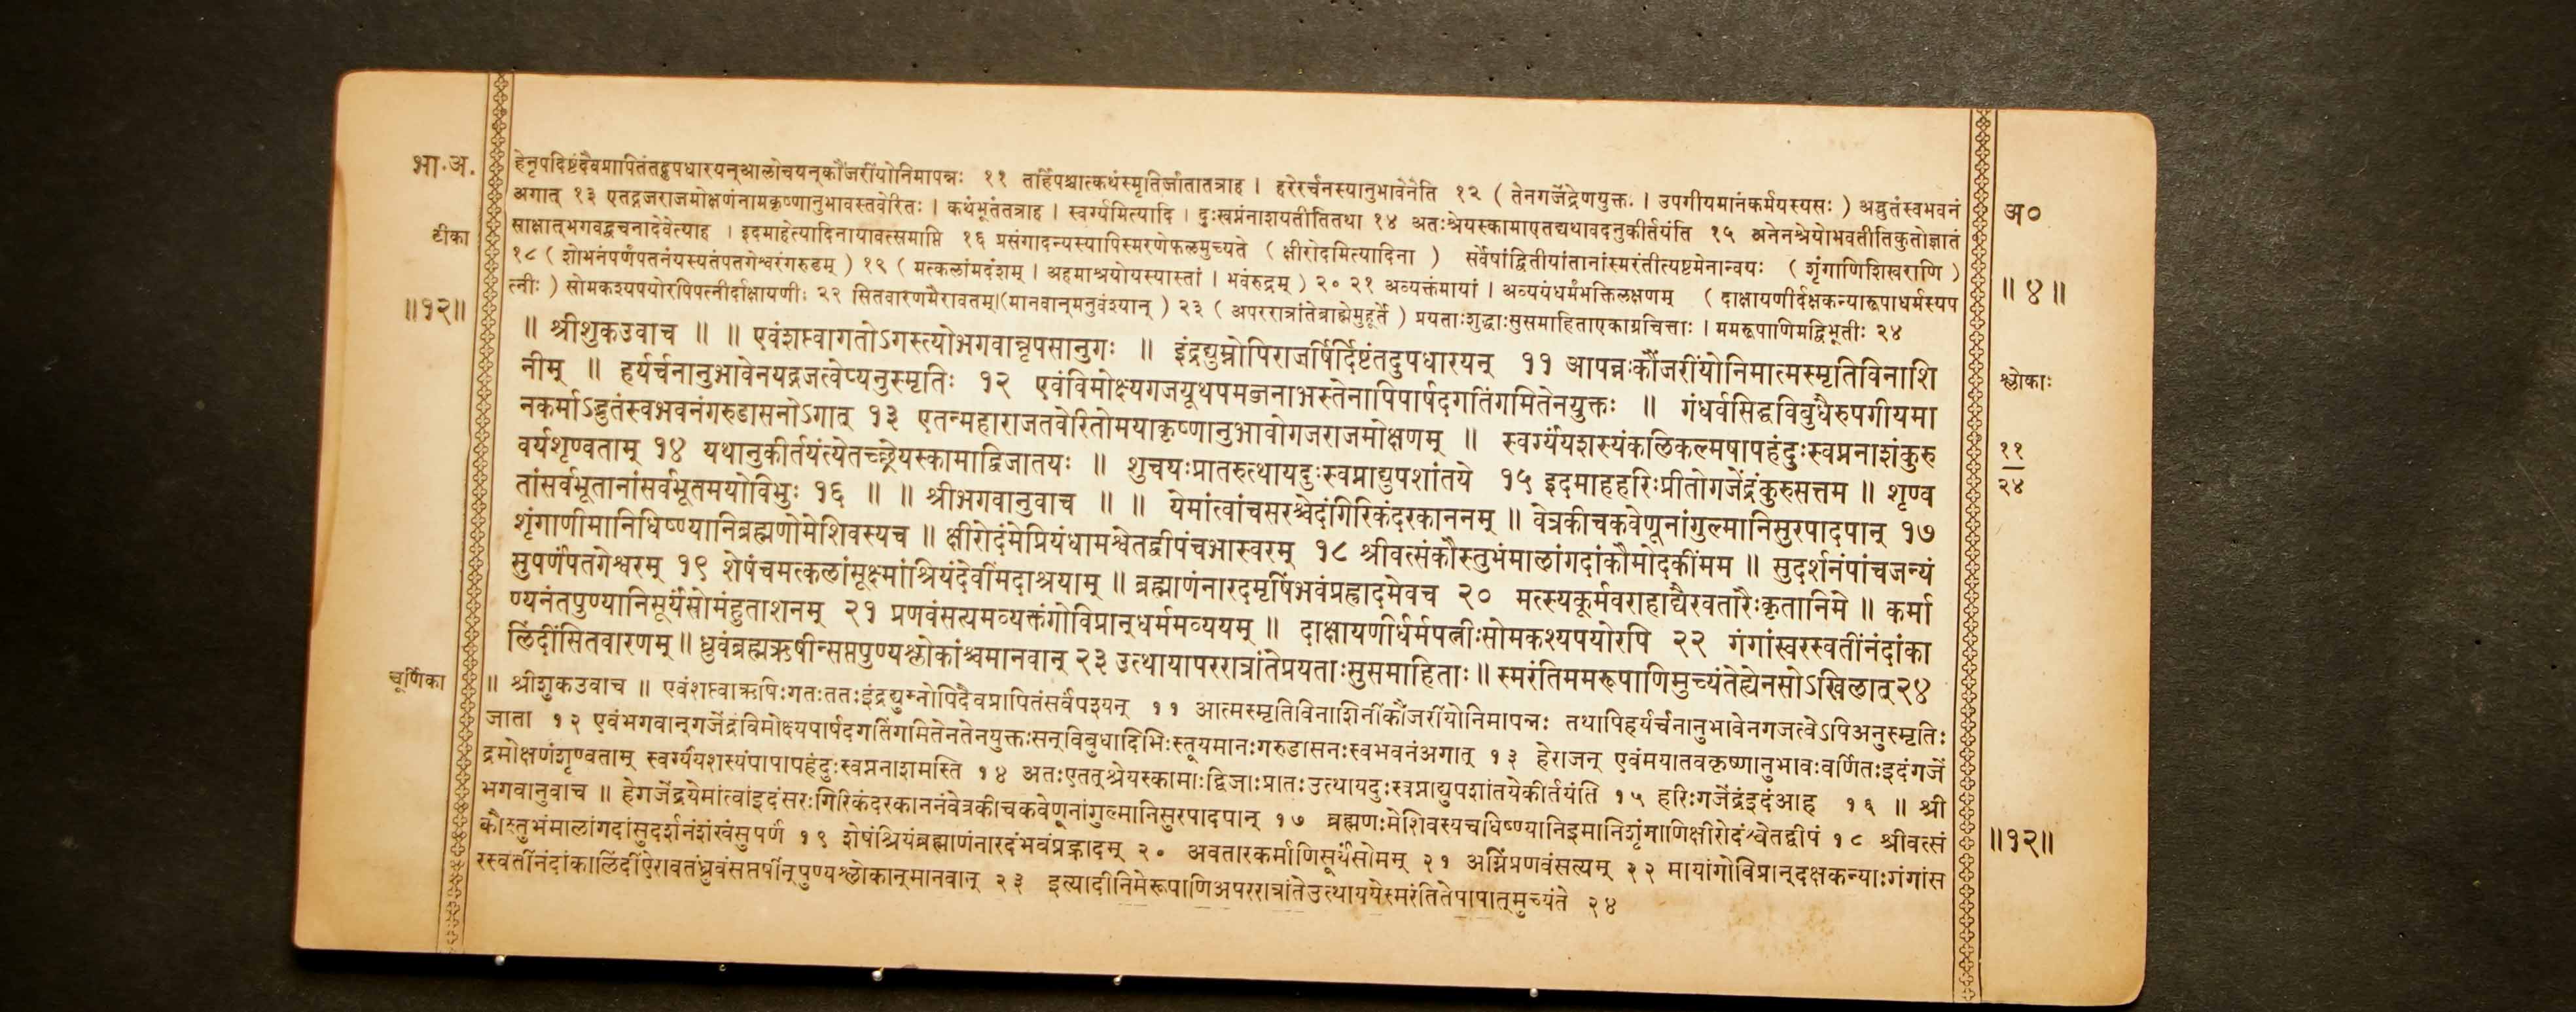 भा.अ.
टीका
॥१२॥
हेनृपदिष्टंदैवप्रापितंतदुपधारयन्आलोचयन्कौंजरींयोनिमापन्नः ११ तर्हिपश्चात्कथंस्मृतिर्जातातत्राह । हरेरर्चनस्यानुभावेनेति १२ ( तेनगजेंद्रेणयुक्तः । उपगीयमानंकर्मयस्यसः ) अद्भुतंस्वभवनं
अगात् १३ एतद्गजराजमोक्षणंनामकृष्णानुभावस्तवेरितः । कथंभूतंतत्राह । स्वर्ग्यमित्यादि । दुःखप्नंनाशयतीतितथा १४ अतःश्रेयस्कामाएतद्यथावदनुकीर्तयंति १५ अनेनश्रेयोभवतीतिकुतोज्ञातं
साक्षात्भगवद्वचनादेवेत्याह । इदमाहेत्यादिनायावत्समाप्ति १६ प्रसंगादन्यस्यापिस्मरणेफलमुच्यते ( क्षीरोदमित्यादिना ) सर्वेषांद्वितीयांतानांस्मरंतीत्यष्टमेनान्वयः ( शृंगाणिशिखराणि )
१८ ( शोभनंपर्णंपतनंयस्यतंपतगेश्वरंगरुडम् ) १९ ( मत्कलांमदंशम् । अहमाश्रयोयस्यास्तां । भवंरुद्रम् ) २० २१ अव्यक्तंमायां । अव्ययंधर्मंभक्तिलक्षणम् ( दाक्षायणीर्दक्षकन्यारूपाधर्मस्यप
त्नीः ) सोमकश्यपयोरपिपत्नीर्दाक्षायणीः २२ सितवारणमैरावतम्।(मानवान्मनुवंश्यान् ) २३ ( अपररात्रांतेब्राह्मेमुहूर्ते ) प्रयताःशुद्धाःसुसमाहिताएकाग्रचित्ताः । ममरूपाणिमद्विभूतीः २४
॥ श्रीशुकउवाच ॥ ॥ एवंशप्त्वागतोऽगस्त्योभगवान्नृपसानुगः ॥ इंद्रद्युम्नोपिराजर्षिर्दिष्टंतदुपधारयन् ११ आपन्नःकौंजरींयोनिमात्मस्मृतिविनाशि
नीम् ॥ हर्यर्चनानुभावेनयद्गजत्वेप्यनुस्मृतिः १२ एवंविमोक्ष्यगजयूथपमब्जनाभस्तेनापिपार्षदगतिंगमितेनयुक्तः ॥ गंधर्वसिद्धविबुधैरुपगीयमा
नकर्माऽद्भुतंस्वभवनंगरुडासनोऽगात् १३ एतन्महाराजतवेरितोमयाकृष्णानुभावोगजराजमोक्षणम् ॥ स्वर्ग्यंयशस्यंकलिकल्मषापहंदुःस्वप्ननाशंकुरु
वर्यशृण्वताम् १४ यथानुकीर्तयंत्येतच्छ्रेयस्कामाद्विजातयः ॥ शुचयःप्रातरुत्थायदुःस्वप्नाद्युपशांतये १५ इदमाहहरिःप्रीतोगजेंद्रंकुरुसत्तम ॥ शृण्व
तांसर्वभूतानांसर्वभूतमयोविभुः १६ ॥ ॥ श्रीभगवानुवाच ॥ ॥ येमांत्वांचसरश्चेदंगिरिकंदरकाननम् ॥ वेत्रकीचकवेणूनांगुल्मानिसुरपादपान् १७
शृंगाणीमानिधिष्ण्यानिब्रह्मणोमेशिवस्यच ॥ क्षीरोदंमेप्रियंधामश्वेतद्वीपंचभास्वरम् १८ श्रीवत्संकौस्तुभंमालांगदांकौमोदकींमम ॥ सुदर्शनंपांचजन्यं
सुपर्णंपतगेश्वरम् १९ शेषंचमत्कलांसूक्ष्मांश्रियंदेवींमदाश्रयाम् ॥ ब्रह्माणंनारदमृषिंभवंप्रह्रादमेवच २० मत्स्यकूर्मवराहाद्यैरवतारैःकृतानिमे ॥ कर्मा
ण्यनंतपुण्यानिसूर्यंसोमंहुताशनम् २१ प्रणवंसत्यमव्यक्तंगोविप्रान्धर्ममव्ययम् ॥ दाक्षायणीर्धर्मपत्नीःसोमकश्यपयोरपि २२ गंगांस्वरस्वतींनंदांका
लिंदींसितवारणम् ॥ ध्रुवंब्रह्मऋषीन्सप्तपुण्यश्लोकांश्चमानवान् २३ उत्थायापररात्रांतेप्रयताःसुसमाहिताः ॥ स्मरंतिममरूपाणिमुच्यंतेह्येनसोऽखिलात्२४
चूर्णिका
॥ श्रीशुकउवाच ॥ एवंशप्त्वाऋषिःगतःततःइंद्रद्युम्नोपिदैवप्रापितंसर्वंपश्यन् ११ आत्मस्मृतिविनाशिनींकौंजरींयोनिमापन्नः तथापिहर्यर्चनानुभावेनगजत्वेऽपिअनुस्मृतिः
जाता १२ एवंभगवान्गजेंद्रंविमोक्ष्यपार्षदगतिंगमितेनतेनयुक्तःसन्विबुधादिभिःस्तूयमानःगरुडासनःस्वभवनंअगात् १३ हेराजन् एवंमयातवकृष्णानुभावःवर्णितःइदंगजें
द्रमोक्षणंशृण्वताम् स्वर्ग्यंयशस्यंपापापहंदुःस्वप्ननाशमस्ति १४ अतःएतत्श्रेयस्कामाःद्विजाःप्रातःउत्थायदुःस्वप्नाद्युपशांतयेकीर्तयंति १५ हरिःगजेंद्रंइदंआह १६ ॥ श्री
भगवानुवाच ॥ हेगजेंद्रयेमांत्वांइदंसरःगिरिकंदरकाननंवेत्रकीचकवेणूनांगुल्मानिसुरपादपान् १७ ब्रह्मणःमेशिवस्यचधिष्ण्यानिइमानिशृंगाणिक्षीरोदंश्वेतद्वीपं १८ श्रीवत्सं
कौस्तुभंमालांगदांसुदर्शनंशंखंसुपर्णं १९ शेषंश्रियंब्रह्माणंनारदंभवंप्रह्लादम् २० अवतारकर्माणिसूर्यंसोमम् २१ अग्निंप्रणवंसत्यम् २२ मायांगोविप्रान्दक्षकन्याःगंगांस
रस्वतींनंदांकालिंदींऐरावतंध्रुवंसप्तर्षीन्पुण्यश्लोकान्मानवान् २३ इत्यादीनिमेरूपाणिअपररात्रांतेउत्थाययेस्मरंतितेपापात्मुच्यंते २४
अ०
॥ ४ ॥
श्लोकाः
११
२४
॥१२॥